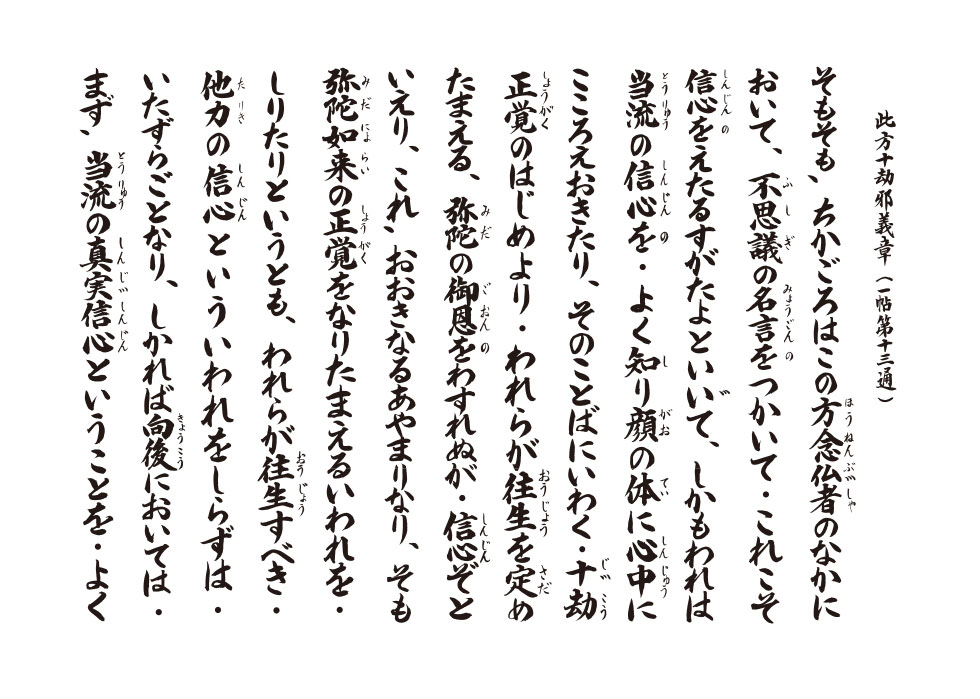 此方十劫邪義章（一帖第十三通）
そもそも、ちかごろはこの方念仏者のなかに
おいて、不思議の名言をつかいて・これこそ
信心をえたるすがたよといいて、しかもわれは
当流の信心を・よく知り顔の体に心中に
こころえおきたり、そのことばにいわく・十劫
正覚のはじめより・われらが往生を定め
たまえる、弥陀の御恩をわすれぬが・信心ぞと
いえり、これ、おおきなるあやまりなり、そも
弥陀如来の正覚をなりたまえるいわれを・
しりたりというとも、われらが往生すべき・
他力の信心といういわれをしらずは・
いたずらごとなり、しかれば向後においては・
まず、当流の真実信心ということを・よく